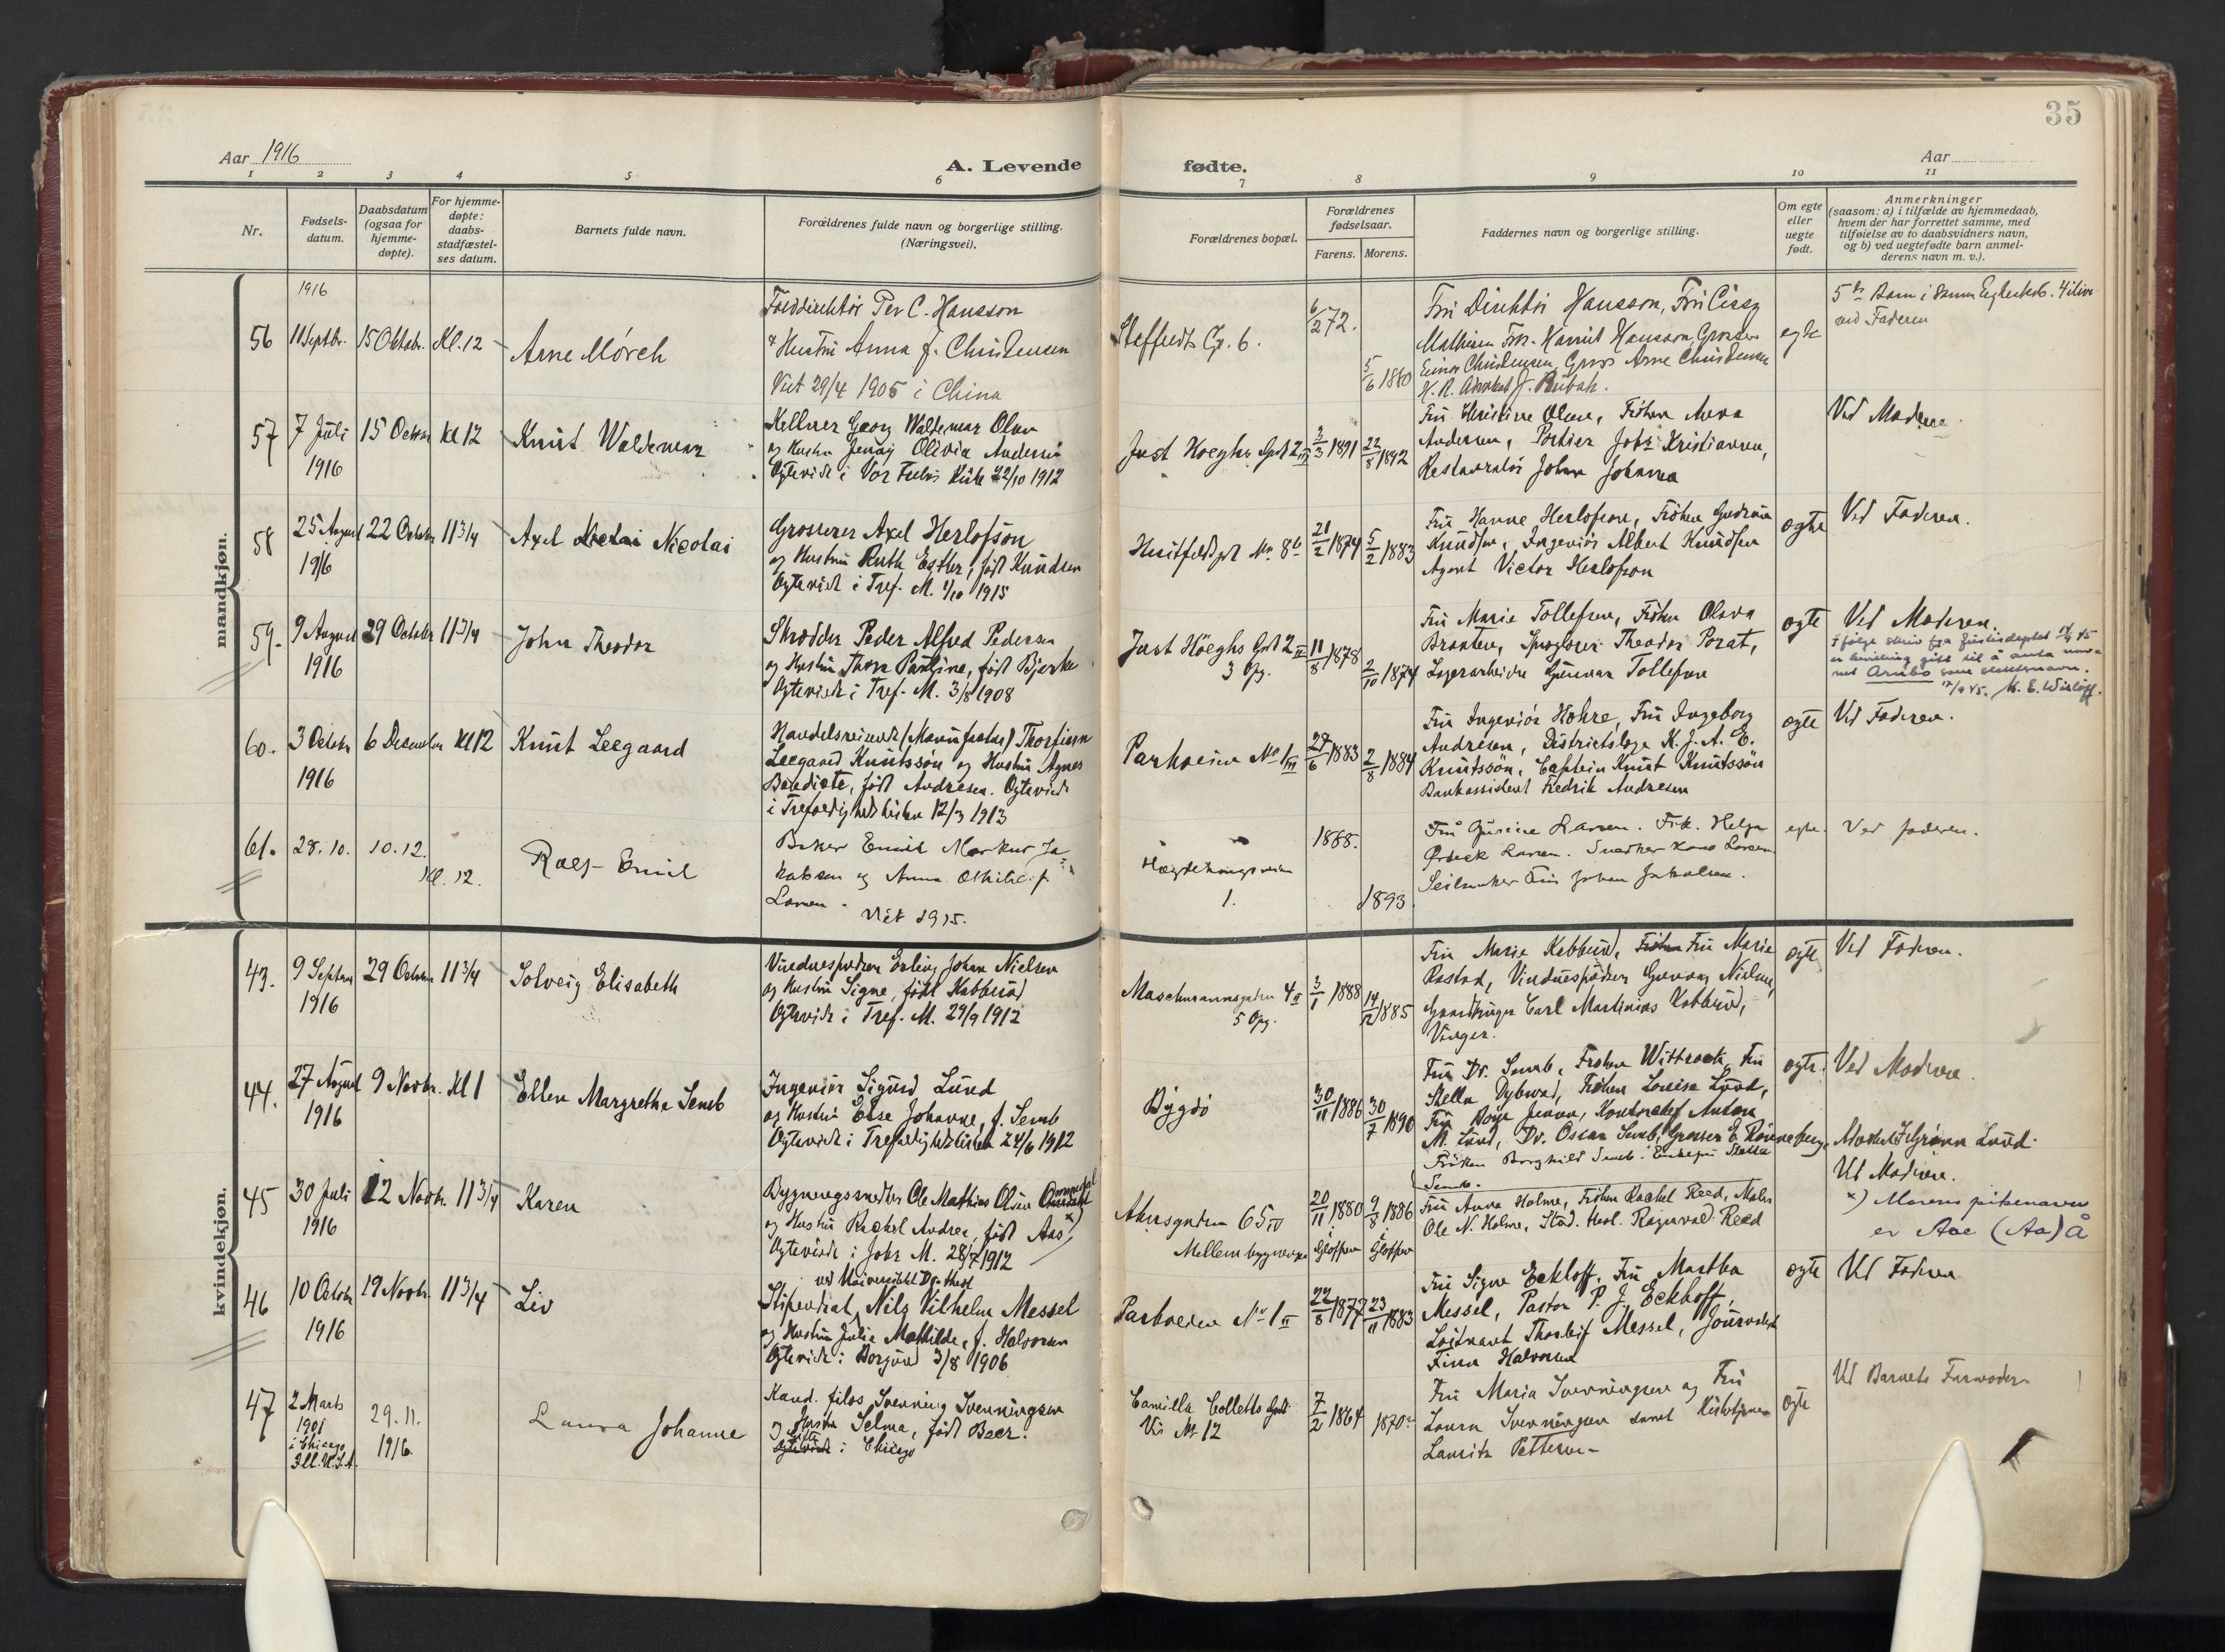 35
Aar 1916
A. Levende
fødte.
Aar
1 2 3 4 5 6 7 8 9 10 11
Nr.
Fødsels-
datum.
Daabsdatum
(ogsaa for
hjemme-
døpte).
For hjemme-
døpte:
daabs-
stadfæstel-
ses datum.
Barnets fulde navn.
Forældrenes fulde navn og borgerlige stilling.
(Næringsvei).
Forældrenes bopæl.
Forældrenes
fødselsaar.
Farens. Morens.
Faddernes navn og borgerlige stilling.
Om egte
eller
uegte
født.
Anmerkninger
(saasom: a) i tilfælde av hjemmedaab,
hvem der har forrettet samme, med
tilføielse av to daabsvidners navn,
og b) ved uegtefødte barn anmel-
derens navn m. v.).
mandkjøn.
1916
56 11 Septbr. 15 Oktobr. Kl. 12
Arne Mörch
Per C. Hansson
Hustru Anna f. Christensen
Viet 29/4 1905 i China
6/2 72.
5/6 1880
Fru Direktör Hansson, Fru Cissy
Einar Christensen, Gross Arne Christensen
egte
ved Faderen
57 7 Juli 15 Octobr Kl 12
1916
Knut Waldemar
Kellner Georg Waldemar Olsen
og Hustru Jenny Olivia Andersen
Ogteviet i Vor Frelsers Kirke 22/10 1912
Just Höeghs Gd 2 III
3/3 1891 22/8 1892
Fru Christine Olsen, Fröken Anna
Andersen, Portier John Kristiansen,
Restauratör Johan Johansen
Ved Moderen.
58 25 August 22 October 11 3/4
1916
Axel Nicolai
Grosserer Axel Herlofson
og Hustru Ruth Esther, født Knudsen
Ogteviet i Tref. M. 1/10 1915
Huitfeldtsgt No. 8 b
21/2 1874 5/2 1883
Fru Hanne Herlofson, Fröken Gudrun
Knudsen, Ingeniör Albert Knudsen
Agent Victor Herlofson
ogte
Ved Faderen.
59. 9 August 29 October 11 3/4
1916
John Theodor
Skrædder Peder Alfred Pedersen
og Hustru Thora Pauline, født Bjerke
Ogteviet i Tref. M. 3/8 1908
Just Höeghs Gd 2 II
3 Opg.
11/8 1878
2/10 1874
Fru Marie Tollefsen, Fröken Olava
Braaten, Theodor Porat,
Lagerarbeider Gunnar Tollefsen
ogte
Ved Moderen.
Ifölge skriv fra Justisdeptet
er bevilling gitt til å anta nav-
net Arnbo som slektsnavn.
60. 3 October 6 December Kl 12
1916
Knut Leegaard
Handelsreisende (Manufactur) Thorfinn
Leegaard Knutssön og Hustru Agnes
Benedicte, født Andresen. Ogteviet
i Trefoldighedskirken 12/3 1913
Parkveien No 1 III
27/6 1883 2/8 1884
Fru Ingeniör Hohre, Fru Ingeborg
Andresen, Distriktslæge K. J. A. E.
Knutssön, Captein Knut Knutssön
Bankassistent Fredrik Andresen
ogte
Ved Faderen.
61. 28. 10. 10. 12.
Kl. 12.
Rolf Emil
Baker Emil Markus Ja-
kobsen og Anna Othilie f.
Larsen.
Viet 1915.
1.
1888.
1893.
Fru Gusine Larsen. Frk. Helga
Seilmaker Finn Johan Jakobsen.
egte.
Ved faderen.
kvindekjøn.
43. 9 Septbr 29 October 11 3/4
1916
Solveig Elisabeth
Vinduespudser Erling Johan Nielsen
og Hustru Signe, født Kabberud
Ogteviet i Tref. M. 29/9 1912
Maschmannsgaten 4 II
5 Opg.
3/1 1888 14/12 1885
Fru Marie Kabberud, Fru Marie
Rastad, Vinduespudser Gunvar Nielsen,
Gaardbruger Carl Martinius Kabberud,
Vinger.
ogte
Ved Faderen.
44. 27 August 9 Novbr. Kl 1
1916
Ellen Margrethe Semb
Ingeniör Sigurd Lund
og Hustru Else Johanne, f. Semb
Ogteviet i Trefoldighedskirken 24/6 1912
Bygdö
30/11 1886 30/7 1890
Fru Dr. Semb, Fröken Wittrock, Fru
Stella Dybwad, Fröken Louise Lund,
Fru Jensen, Kontorchef Anton
M. Lund, Dr. Oscar Semb, Grosser E. Rönneberg,
Fröken Borghild Semb. Enkefru Stella
Semb.
ogte.
Ved Moderen.
45 30 Juli 12 Novbr. 11 3/4
1916
Karen
Bygningssnedker Ole Mathias Olsen
og Hustru Rachel Andrea, født Aas x)
Ogteviet i Johs M. 28/7 1912
Akersgaten 65 IV
Mellembygningen
20/11 1880 9/8 1886
Fru Anna Holme, Fröken Rachel Reed, Maler
Ole N. Holme, Stud. theol. Ragnvald Reed
Ved Moderen.
x) Morens pikenavn
er Aae (Aa) Å
46 10 Octobr 19 Novbr. 11 3/4
1916
Liv
ved Universitetet
Stipendiat, Nils Vilhelm Messel
og Hustru Julie Mathilde, f. Halvorsen
Ogteviet i Borgund 3/8 1906
Parkveien No 1 II
22/8 1877 23/11 1883
Fru Signe Eckhoff, Fru Martha
Messel, Pastor P. J. Eckhoff,
Löitnant Thorleif Messel, Journalist
Finn Halvorsen
ogte
Ved Faderen
47 2 Marts
1901
i Chicago
Ill. U.S.A.
29. 11.
1916.
Laura Johanne
Kand. filos Svenning Svenningsen
og Hustru Selma, født Baer.
i Chicago
Camilla Colletts
Vei No 12
7/2 1864 1870
Fru Maria Svenningsen og Fru
Laura Svenningsen samt Kirketjener
Lauritz Pettersen
ogte
Ved Barnets Farmoder